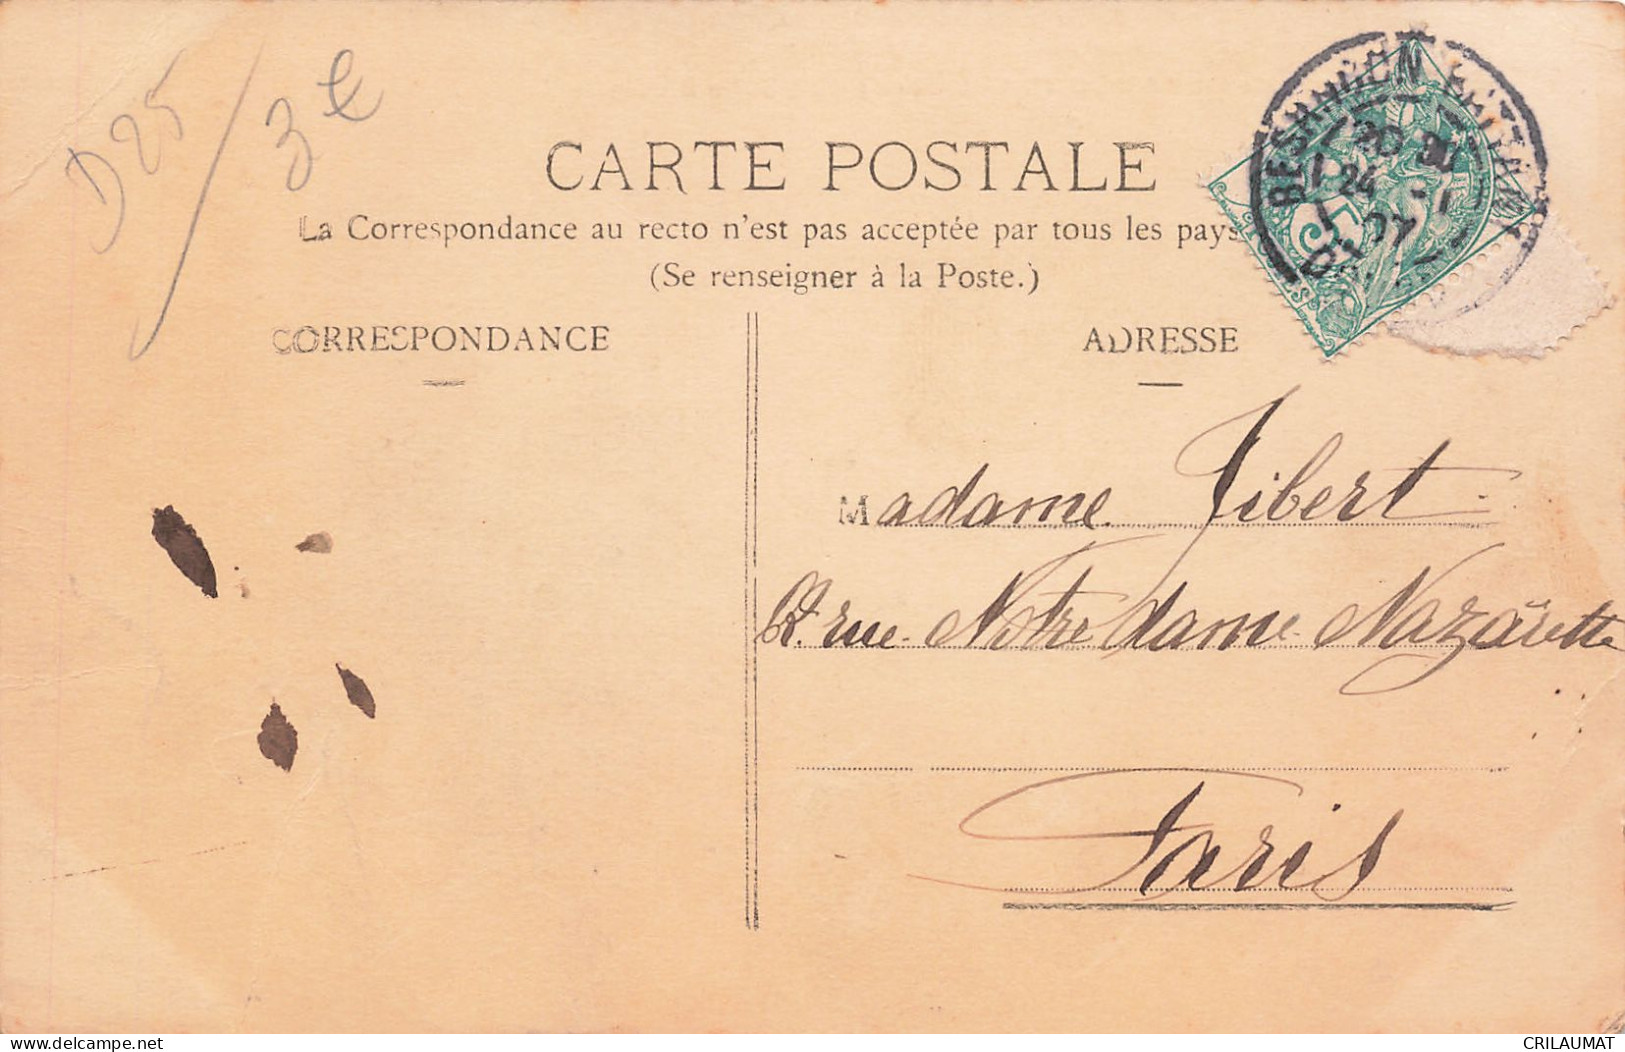 D25 / 3€
CARTE POSTALE
La Correspondance au recto n'est pas acceptée par tous les pays
(Se renseigner à la Poste.)
CORRESPONDANCE
ADRESSE
BESANÇON
24
5
Madame Jibert
rue Notre dame Nazarette
Paris
CRILAUMAT